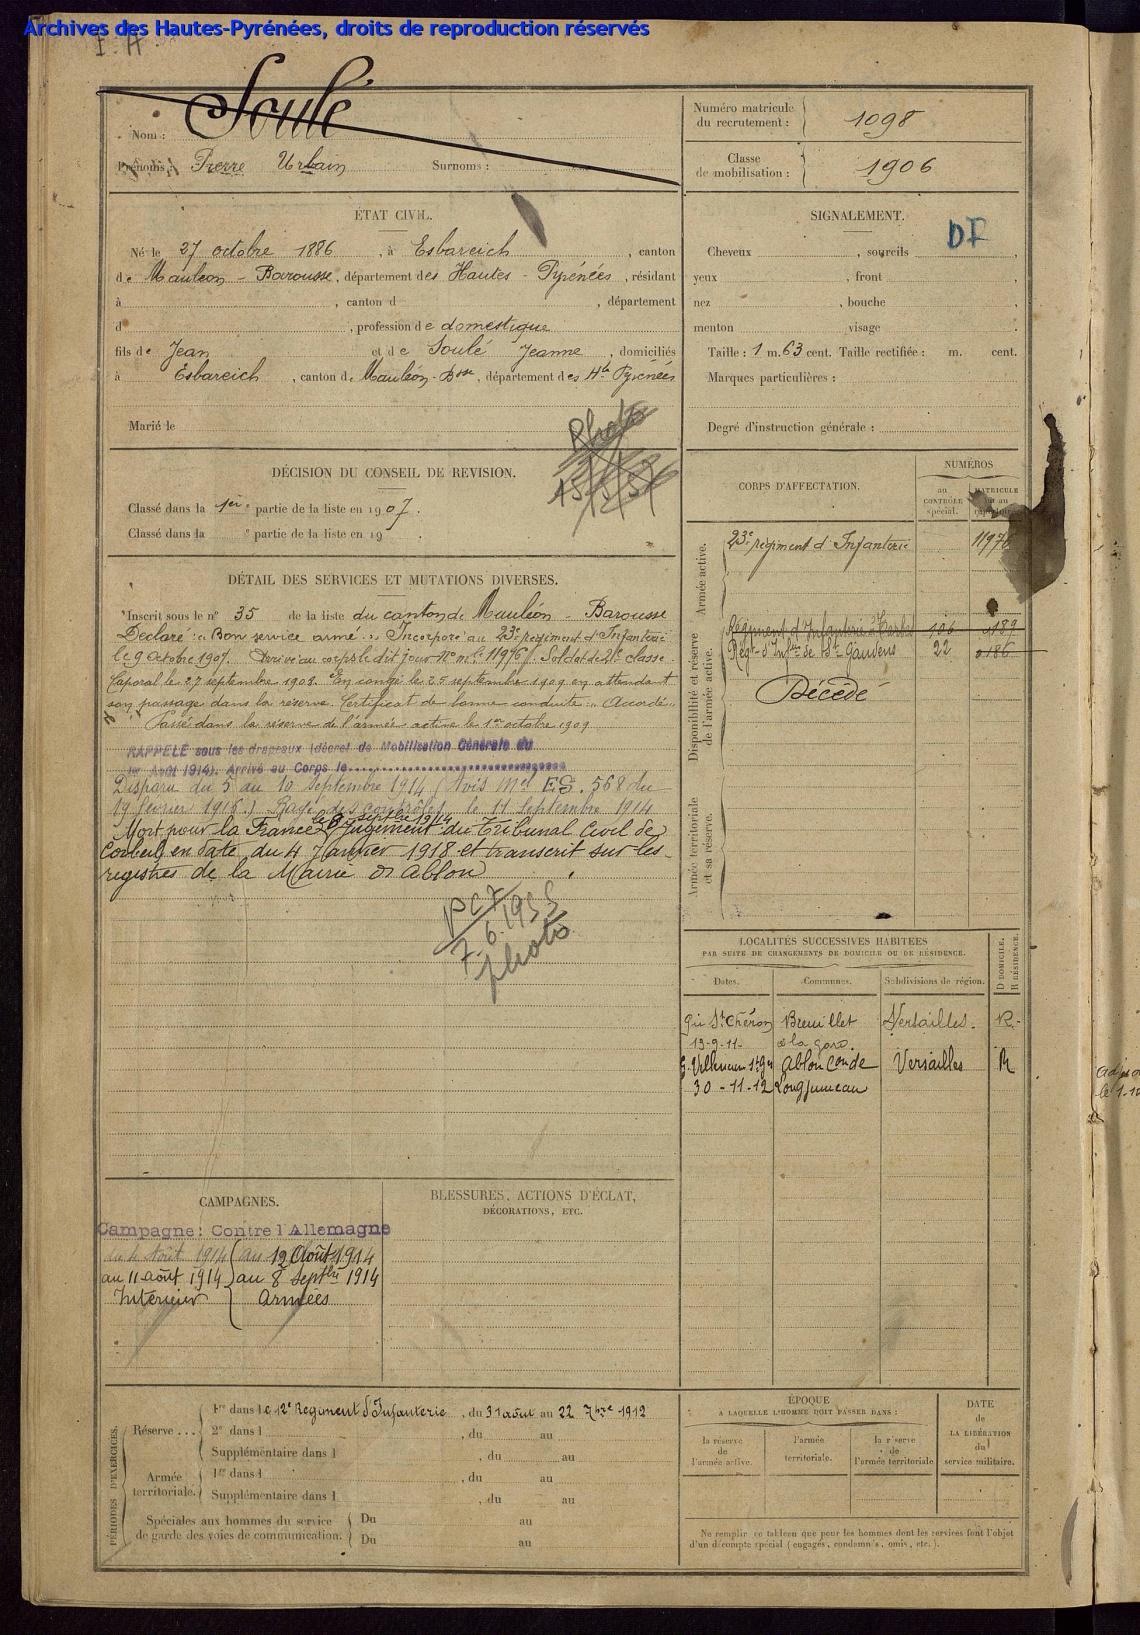 Archives des Hautes-Pyrénées, droits de reproduction réservés
Nom : Soulé
Prénoms : Pierre Urbain Surnoms :
Numéro matricule du recrutement : 1098
Classe de mobilisation : 1906
ÉTAT CIVIL.
Né le 27 octobre 1886, à Esbareich, canton
de Mauléon-Barousse, département des Hautes-Pyrénées, résidant
à , canton d , département
d , profession de domestique
fils de Jean et de Soulé Jeanne, domiciliés
à Esbareich, canton de Mauléon-Bsse, département des Htes Pyrénées
Marié le
Photo
SIGNALEMENT.
DF
Cheveux , sourcils ,
yeux , front ,
nez , bouche ,
menton visage .
Taille : 1 m. 63 cent. Taille rectifiée : m. cent.
Marques particulières :
Degré d'instruction générale :
DÉCISION DU CONSEIL DE REVISION.
Classé dans la 1ère partie de la liste en 1907.
Classé dans la e partie de la liste en 19
DÉTAIL DES SERVICES ET MUTATIONS DIVERSES.
Inscrit sous le n° 35 de la liste du canton de Mauléon-Barousse
Déclaré : « Bon service armé ». Incorporé au 23e régiment d'Infanterie
le 9 octobre 1907. Arrivé au corps le dit jour. N° mle 11976. Soldat de 2e classe.
Caporal le 27 septembre 1908. En congé le 25 septembre 1909 en attendant
son passage dans la réserve. Certificat de bonne conduite « Accordé ».
Passé dans la réserve de l'armée active le 1er octobre 1909
RAPPELÉ sous les drapeaux (décret de Mobilisation Générale du
1er Août 1914). Arrivé au Corps le
Disparu du 5 au 10 septembre 1914 (Avis Mel ES. 568 du
19 février 1916.) Rayé des contrôles le 11 septembre 1914
le 8 septbre 1914
Mort pour la France Jugement du Tribunal Civil de
Corbeil en date du 4 Janvier 1918 et transcrit sur les
registres de la Mairie d'Ablon
7.6.1955
photo
CORPS D'AFFECTATION.
NUMÉROS
au CONTRÔLE spécial.
MATRICULE ou au répertoire.
Armée active.
23e régiment d'Infanterie 11976
Disponibilité et réserve de l'armée active.
Régiment d'Infanterie Tarbes 106 0189
Régt d'Infie de St Gaudens 22 0186
Décédé
Armée territoriale et sa réserve.
LOCALITÉS SUCCESSIVES HABITÉES
PAR SUITE DE CHANGEMENTS DE DOMICILE OU DE RÉSIDENCE.
Dates. Communes. Subdivisions de région. D DOMICILE. R RÉSIDENCE.
Gie St Chéron Breuillet Versailles. R.
13-9-11 à la gare.
Ablon Con de Versailles R
30-11-12 Longjumeau
CAMPAGNES.
Campagne : Contre l'Allemagne
du 4 Août 1914 au 12 Août 1914
au 11 août 1914 au 8 Septbre 1914
Intérieur Armées
BLESSURES, ACTIONS D'ÉCLAT,
DÉCORATIONS, ETC.
PÉRIODES D'EXERCICES.
Réserve ... 1re dans le 12e Régiment d'Infanterie, du 31 août au 22 7bre 1912
2e dans l , du au
Supplémentaire dans l , du au
Armée territoriale. 1re dans l , du au
Supplémentaire dans l , du au
Spéciales aux hommes du service de garde des voies de communication. Du au
Du au
ÉPOQUE
A LAQUELLE L'HOMME DOIT PASSER DANS :
la réserve de l'armée active.
l'armée territoriale.
la réserve de l'armée territoriale
DATE de LA LIBÉRATION du service militaire.
Ne remplir ce tableau que pour les hommes dont les services font l'objet
d'un décompte spécial (engagés, condamnés, omis, etc.).